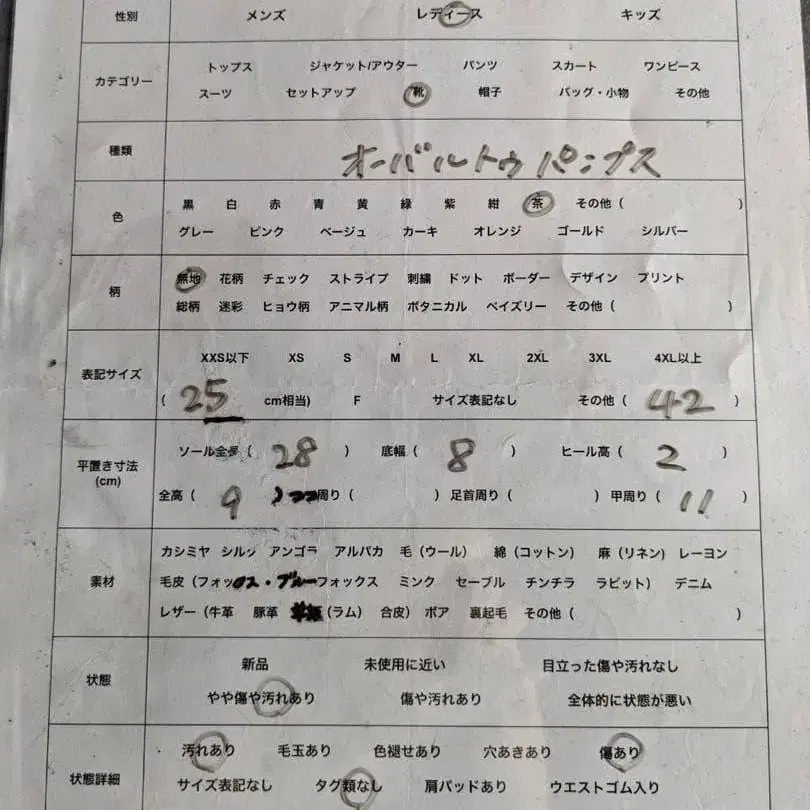 性別 メンズ レディース キッズ
カテゴリー トップス ジャケット/アウター パンツ スカート ワンピース
スーツ セットアップ 靴 帽子 バッグ・小物 その他
種類 オーバルトゥパンプス
色 黒 白 赤 青 黄 緑 紫 紺 茶 その他 ( )
グレー ピンク ベージュ カーキ オレンジ ゴールド シルバー
柄 無地 花柄 チェック ストライプ 刺繍 ドット ボーダー デザイン プリント
総柄 迷彩 ヒョウ柄 アニマル柄 ボタニカル ペイズリー その他 ( )
表記サイズ XXS以下 XS S M L XL 2XL 3XL 4XL以上
( 25 cm相当) F サイズ表記なし その他 ( 42 )
平置き寸法 (cm) ソール全長 ( 28 ) 底幅 ( 8 ) ヒール高 ( 2 )
全高 ( 9 ) 周り ( ) 足首周り ( ) 甲周り ( 11 )
素材 カシミヤ シルク アンゴラ アルパカ 毛 (ウール) 綿 (コットン) 麻 (リネン) レーヨン
毛皮 (フォックス・ブルーフォックス ミンク セーブル チンチラ ラビット) デニム
レザー (牛革 豚革 (ラム) 合皮) ボア 裏起毛 その他 ( )
状態 新品 未使用に近い 目立った傷や汚れなし
やや傷や汚れあり 傷や汚れあり 全体的に状態が悪い
状態詳細 汚れあり 毛玉あり 色褪せあり 穴あきあり 傷あり
サイズ表記なし タグ類なし 肩パッドあり ウエストゴム入り